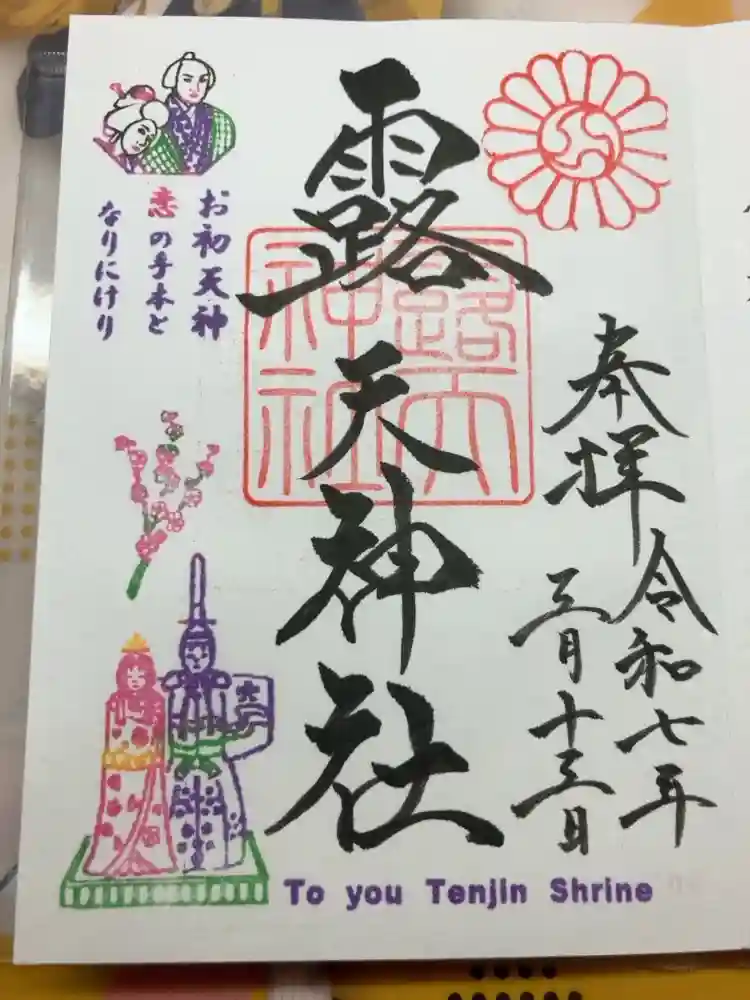 奉拝
令和七年
三月十三日
露天神社
露天
神社
お初天神
恋の手本と
なりにけり
To you Tenjin Shrine